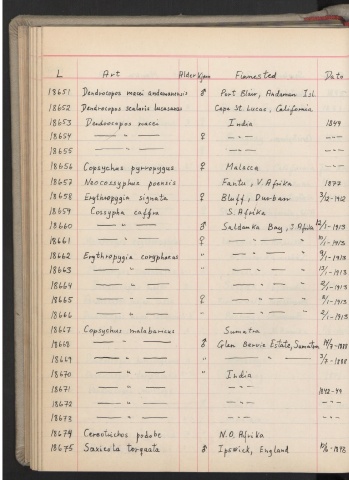 L Art Alder Kjønn Finnested Dato
18651 Dendrocopos macei andamanensis ♂ Port Blair, Andaman Isl.
18652 Dendrocopos scalaris lucasanus Cape St Lucas, California
18653 Dendrocopos macei India 1849
18654 — " — ♀ — " — — " —
18655 — " — — " — — " —
18656 Copsychus pyrropygus ♀ Malacca — " —
18657 Neocossyphus poensis ♀ Fantu, V. Afrika 1877
18658 Erythropygia signata ♀ Bluff, Durban 3/12-1912
18659 Cossypha caffra S. Afrika
18660 — " — ♂ Saldanka Bay, S. Afrika 12/1-1913
18661 — " — ♀ — " — " — 10/1-1913
18662 Erythropygia coryphaeus " — " — " — 9/1-1913
18663 — " — " — " — " — 13/1-1913
18664 — " — " — " — " — 12/1-1913
18665 — " — ♀ — " — " — 8/1-1913
18666 — " — " — " — " — 12/1-1913
18667 Copsychus malabaricus Sumatra
18668 — " — ♂ Glen Bervie Estate, Sumatra 14/7-1888
18669 — " — " — " — " 3/7-1888
18670 — " — " India
18671 — " — — " — 1842-49
18672 — " — — " — — " —
18673 — " — — " — — " —
18674 Cercotrichas podobe N.O. Afrika
18675 Saxicola torquata ♂ Ipswick, England